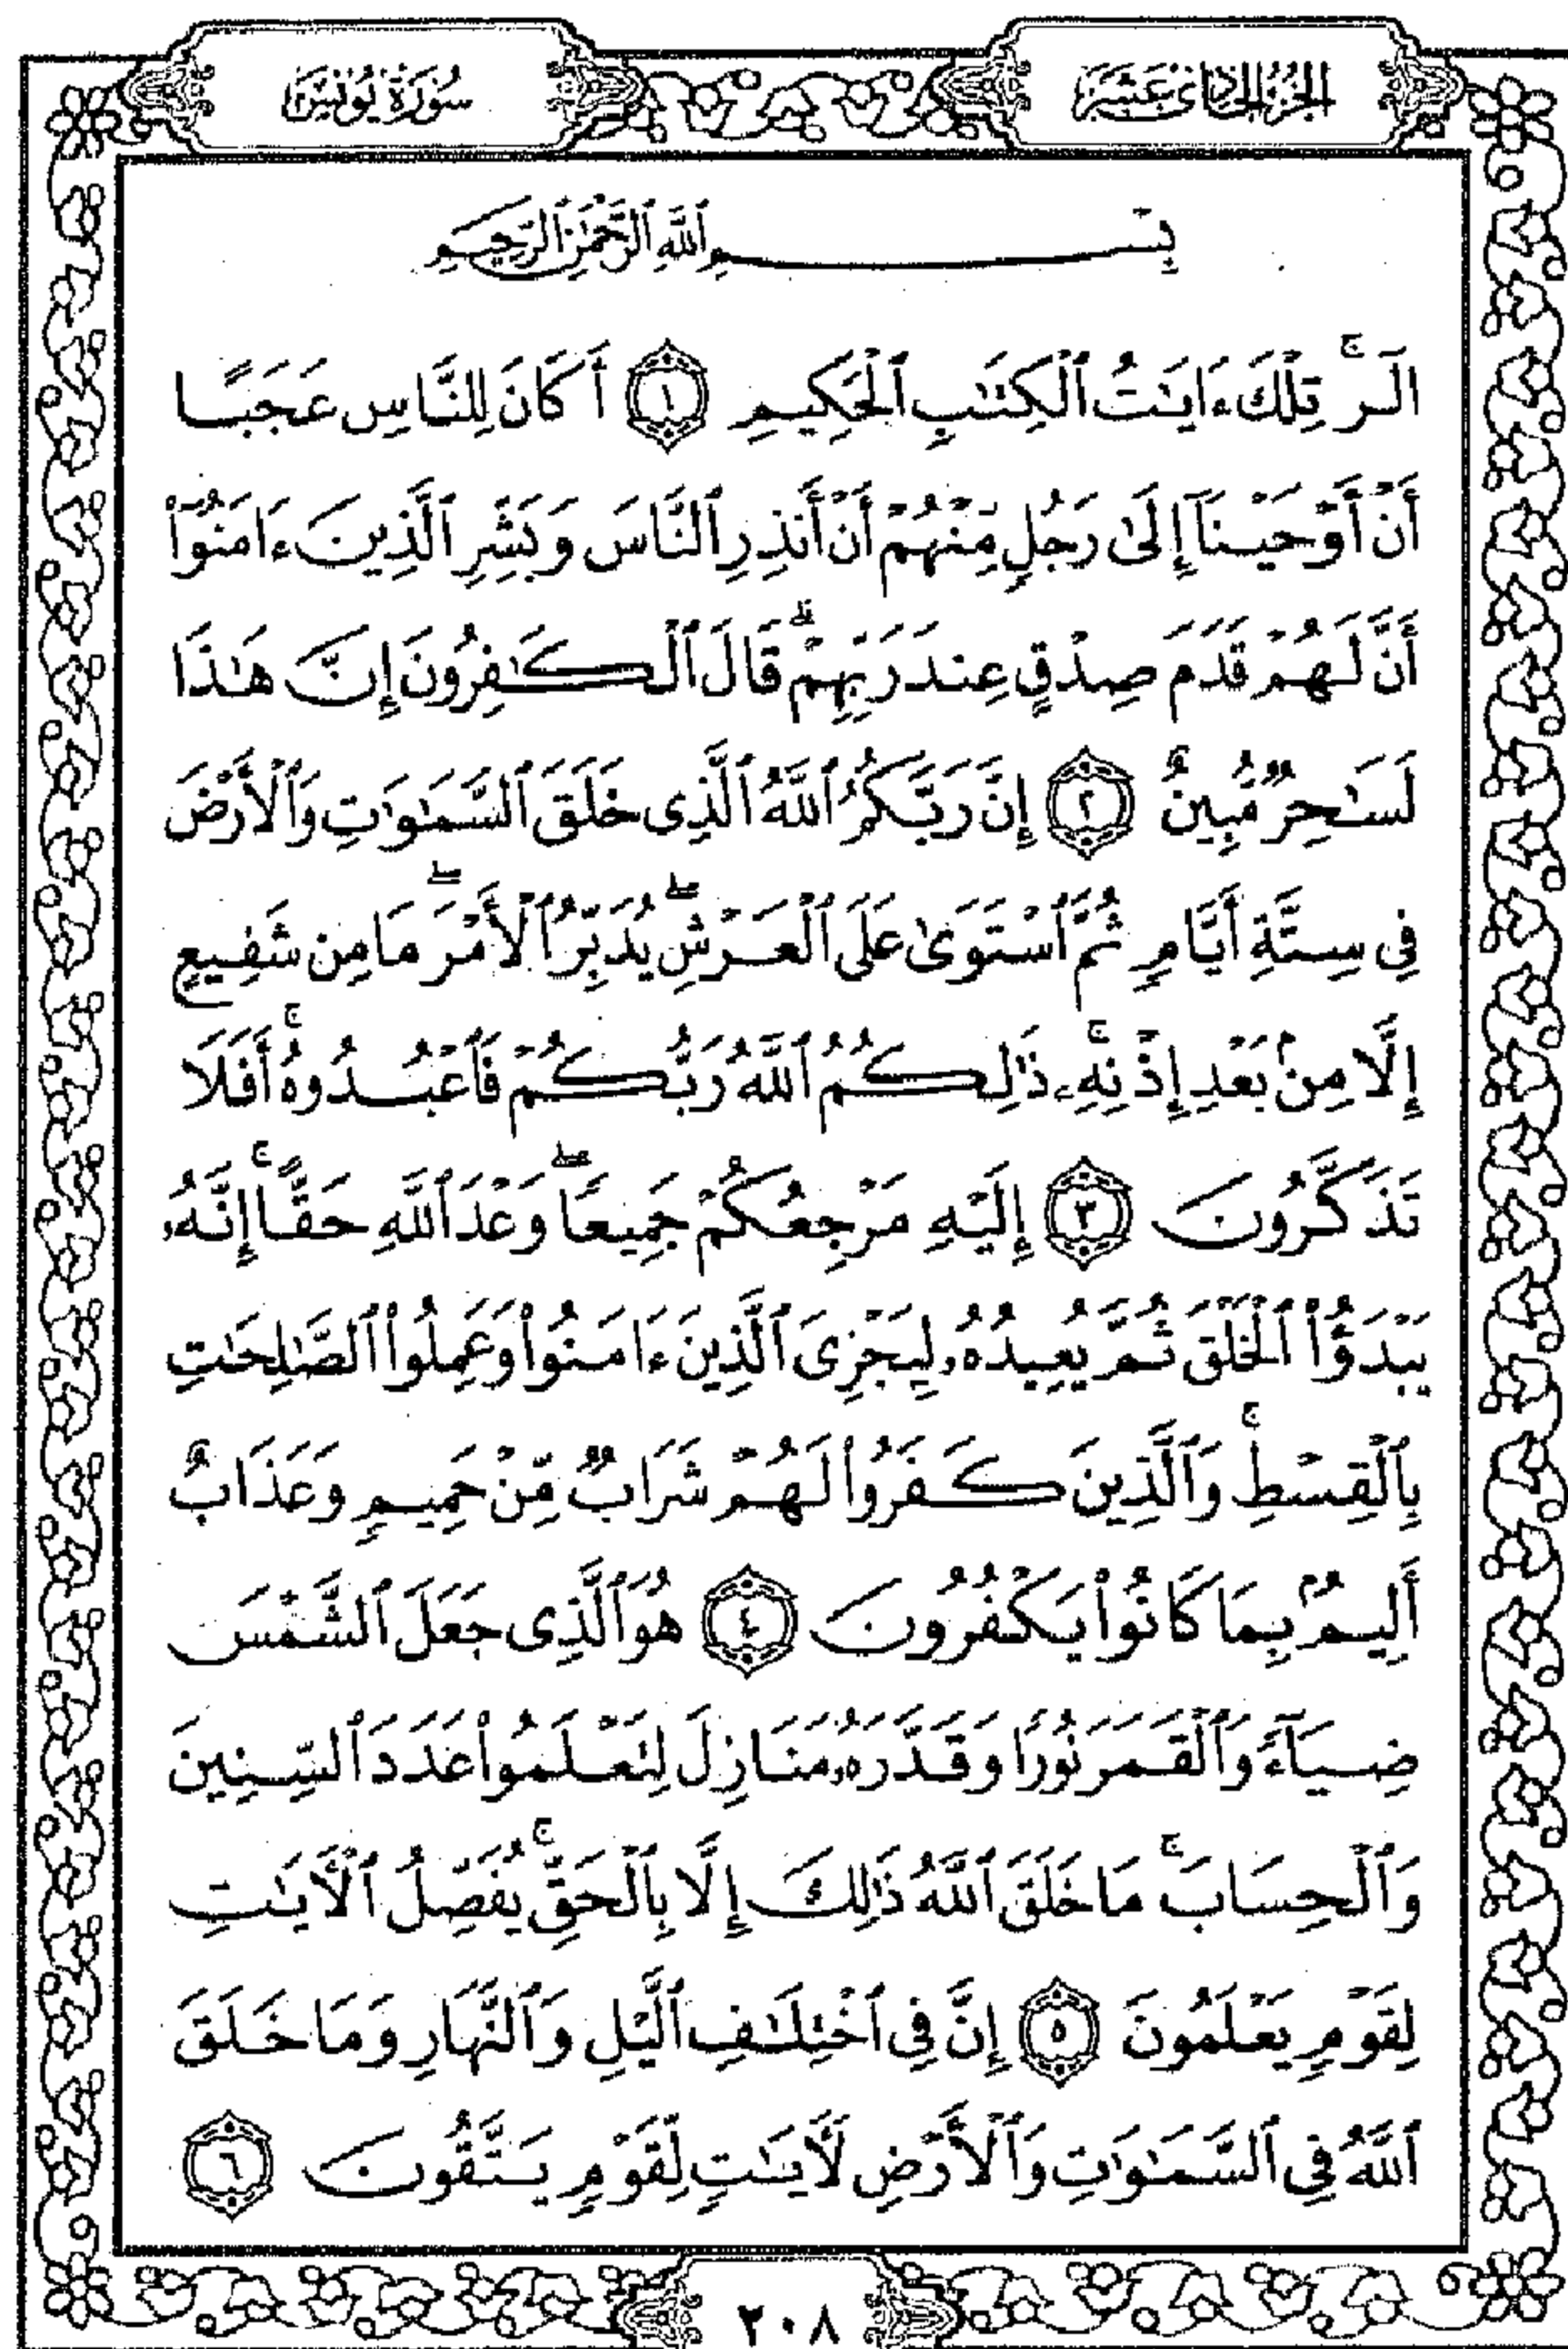 الجزء الحادي عشر
سورة يونس
بِسْمِ ٱللَّهِ ٱلرَّحْمَٰنِ ٱلرَّحِيمِ
الٓرۚ تِلْكَ ءَايَٰتُ ٱلْكِتَٰبِ ٱلْحَكِيمِ ١ أَكَانَ لِلنَّاسِ عَجَبًا
أَنْ أَوْحَيْنَآ إِلَىٰ رَجُلٍ مِّنْهُمْ أَنْ أَنذِرِ ٱلنَّاسَ وَبَشِّرِ ٱلَّذِينَ ءَامَنُوٓا۟
أَنَّ لَهُمْ قَدَمَ صِدْقٍ عِندَ رَبِّهِمْ ۗ قَالَ ٱلْكَٰفِرُونَ إِنَّ هَٰذَا
لَسَٰحِرٌ مُّبِينٌ ٢ إِنَّ رَبَّكُمُ ٱللَّهُ ٱلَّذِى خَلَقَ ٱلسَّمَٰوَٰتِ وَٱلْأَرْضَ
فِى سِتَّةِ أَيَّامٍ ثُمَّ ٱسْتَوَىٰ عَلَى ٱلْعَرْشِ ۖ يُدَبِّرُ ٱلْأَمْرَ ۖ مَا مِن شَفِيعٍ
إِلَّا مِنۢ بَعْدِ إِذْنِهِۦ ۚ ذَٰلِكُمُ ٱللَّهُ رَبُّكُمْ فَٱعْبُدُوهُ ۚ أَفَلَا
تَذَكَّرُونَ ٣ إِلَيْهِ مَرْجِعُكُمْ جَمِيعًا ۖ وَعْدَ ٱللَّهِ حَقًّا ۚ إِنَّهُۥ
يَبْدَؤُا۟ ٱلْخَلْقَ ثُمَّ يُعِيدُهُۥ لِيَجْزِىَ ٱلَّذِينَ ءَامَنُوا۟ وَعَمِلُوا۟ ٱلصَّٰلِحَٰتِ
بِٱلْقِسْطِ ۚ وَٱلَّذِينَ كَفَرُوا۟ لَهُمْ شَرَابٌ مِّنْ حَمِيمٍ وَعَذَابٌ
أَلِيمٌۢ بِمَا كَانُوا۟ يَكْفُرُونَ ٤ هُوَ ٱلَّذِى جَعَلَ ٱلشَّمْسَ
ضِيَآءً وَٱلْقَمَرَ نُورًا وَقَدَّرَهُۥ مَنَازِلَ لِتَعْلَمُوا۟ عَدَدَ ٱلسِّنِينَ
وَٱلْحِسَابَ ۚ مَا خَلَقَ ٱللَّهُ ذَٰلِكَ إِلَّا بِٱلْحَقِّ ۚ يُفَصِّلُ ٱلْءَايَٰتِ
لِقَوْمٍ يَعْلَمُونَ ٥ إِنَّ فِى ٱخْتِلَٰفِ ٱلَّيْلِ وَٱلنَّهَارِ وَمَا خَلَقَ
ٱللَّهُ فِى ٱلسَّمَٰوَٰتِ وَٱلْأَرْضِ لَءَايَٰتٍ لِّقَوْمٍ يَتَّقُونَ ٦
٢٠٨